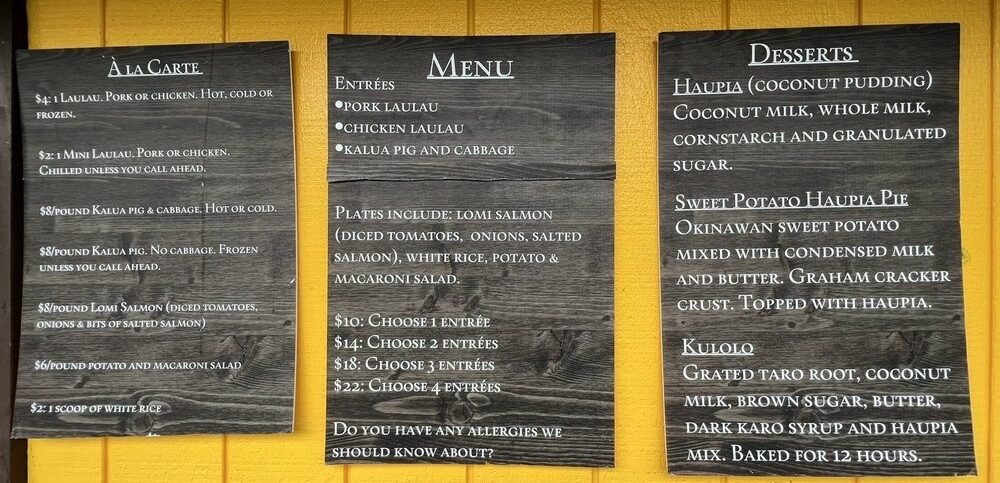 À la Carte
$4: 1 Laulau. Pork or chicken. Hot, cold or
frozen.
$2: 1 Mini Laulau. Pork or chicken.
Chilled unless you call ahead.
$8/pound Kalua pig & cabbage. Hot or cold.
$8/pound Kalua pig. No cabbage. Frozen
unless you call ahead.
$8/pound Lomi Salmon (diced tomatoes,
onions & bits of salted salmon)
$6/pound potato and macaroni salad
$2: 1 scoop of white rice
Menu
Entrées
•pork laulau
•chicken laulau
•kalua pig and cabbage
Plates include: lomi salmon
(diced tomatoes, onions, salted
salmon), white rice, potato &
macaroni salad.
$10: Choose 1 entrée
$14: Choose 2 entrées
$18: Choose 3 entrées
$22: Choose 4 entrées
Do you have any allergies we
should know about?
Desserts
Haupia (coconut pudding)
Coconut milk, whole milk,
cornstarch and granulated
sugar.
Sweet Potato Haupia Pie
Okinawan sweet potato
mixed with condensed milk
and butter. Graham cracker
crust. Topped with haupia.
Kulolo
Grated taro root, coconut
milk, brown sugar, butter,
dark karo syrup and haupia
mix. Baked for 12 hours.